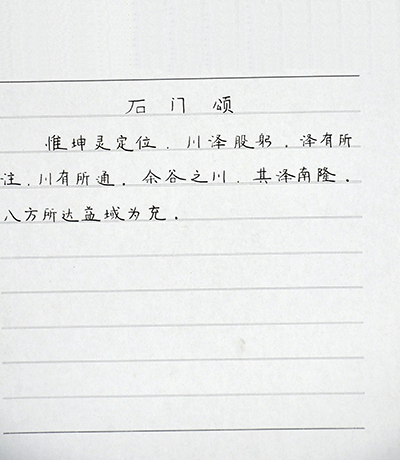 石门颂
惟坤灵定位．川泽股躬．泽有所
注．川有所通．余谷之川．其泽南隆．
八方所达益域为充．